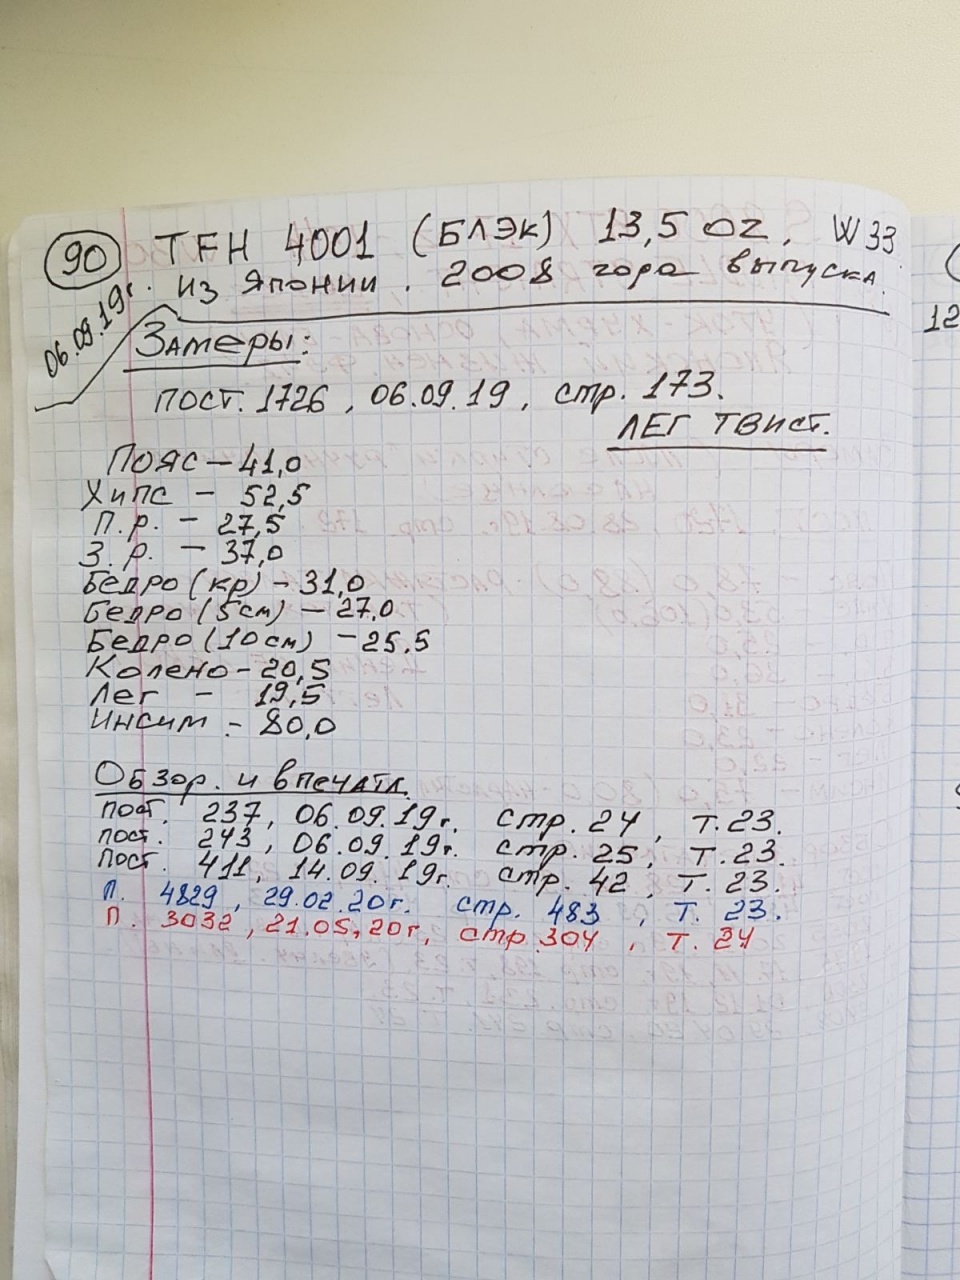 90 TFH 4001 (БЛЭК) 13,5 OZ, W33
06.09.19г. из Японии. 2008 года выпуска.
Замеры:
пост. 1726, 06.09.19, стр. 173.
ЛЕГ ТВИСТ.
Пояс - 41,0
Хипс - 52,5
П.р. - 27,5
З.р. - 37,0
Бедро (кр) - 31,0
Бедро (5см) - 27,0
Бедро (10см) - 25,5
Колено - 20,5
Лег - 19,5
Инсим - 80,0
Обзор. и впечатл.
пост. 237, 06.09.19г. стр. 24, т.23.
пост. 243, 06.09.19г. стр. 25, т.23.
пост. 411, 14.09.19г. стр. 42, т.23.
п. 4829, 29.02.20г. стр. 483, т. 23.
п. 3032, 21.05.20г, стр 304, т. 24
12